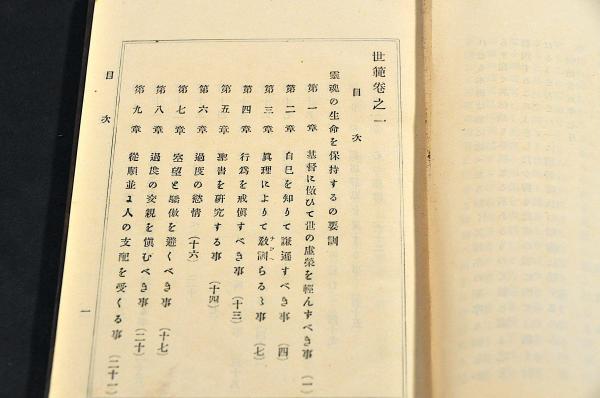 世範卷之一
目次
靈魂の生命を保持するの要訓
第一章 基督に倣ひて世の虛榮を輕んすべき事 (一)
第二章 自己を知りて謙遜すべき事 (四)
第三章 眞理によりて敎訓らるゝ事 (七)
第四章 行爲を戒愼すべき事 (十三)
第五章 聖書を硏究する事 (十四)
第六章 過度の慾情 (十六)
第七章 空望と驕傲を避くべき事 (十七)
第八章 過度の交親を愼むべき事 (二十)
第九章 從順並に人の支配を受くる事 (二十一)
目次
一